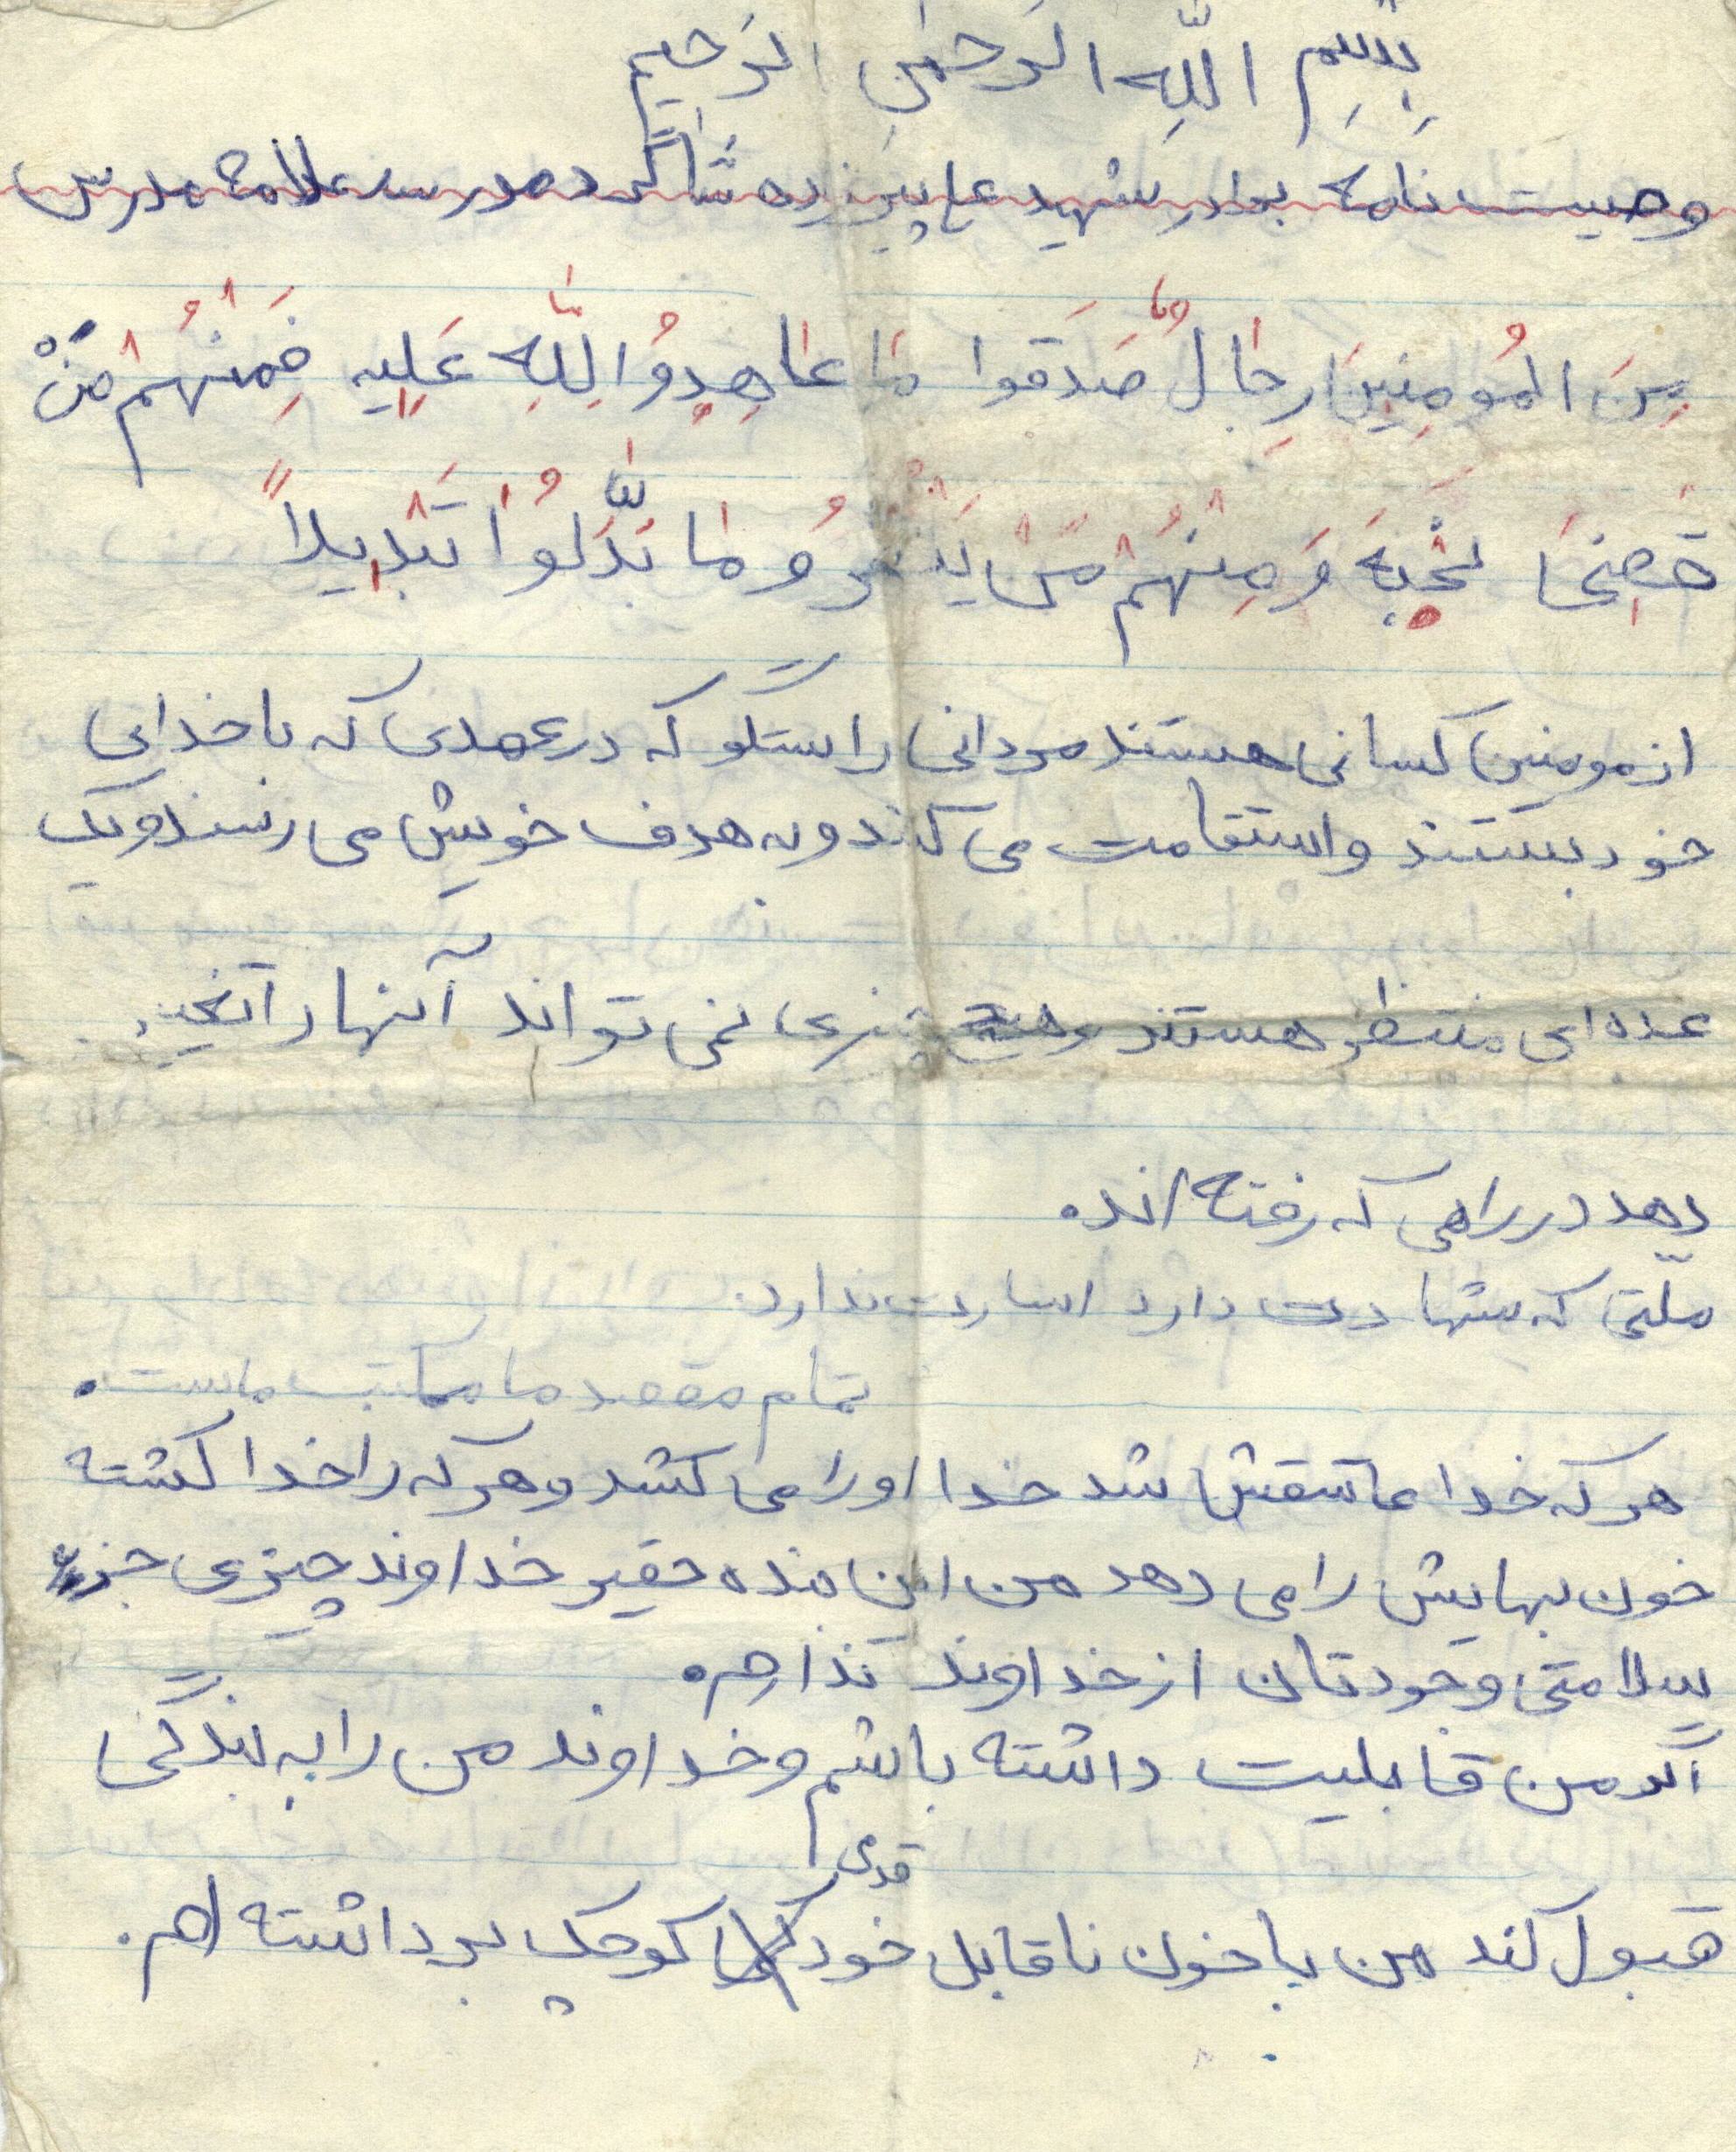 بِسْمِ اللّهِ الرَحمنِ الرَحیم
وصیت نامه برادر شهید علی پیرزاده شاگرد مدرسه علامه مدرس
مِنَ المُومِنِینَ رِجالٌ صَدَقوا ما عاهِدوُاللّهِ عَلَیهِ فَمِنْهُمْ مَنْ
قَضی نَحْبِهَ وَ مِنْهُمْ مَنْ یَنْتَظِرُ وَ ما بَدَّلوُا تَبْدیلاً
از مومنین کسانی هستند مردانی راستگو که در عهدی که با خدای
خود بستند و استقامت می کنند و به هدف خویش می رسند و یک
عده ای منتظر هستند و هیچ چیزی نمی تواند آنها را تغیر
دهد در راهی که رفته اند.
ملّتی که شهادت دارد اسارت ندارد.
تمام مقصد ما مکتب ماست.
هر که خدا عاشقش شد خدا او را می کشد و هر که را خدا کشته
خون بهایش را می دهد من این بنده حقیر خداوند چیزی جز
سلامتی وجودتان از خداوند ندارم.
اگر من قابلیت داشته باشم و خداوند من را به بندگی
قدمی
قبول کند من با خون ناقابل خود کوچک برداشته ام.